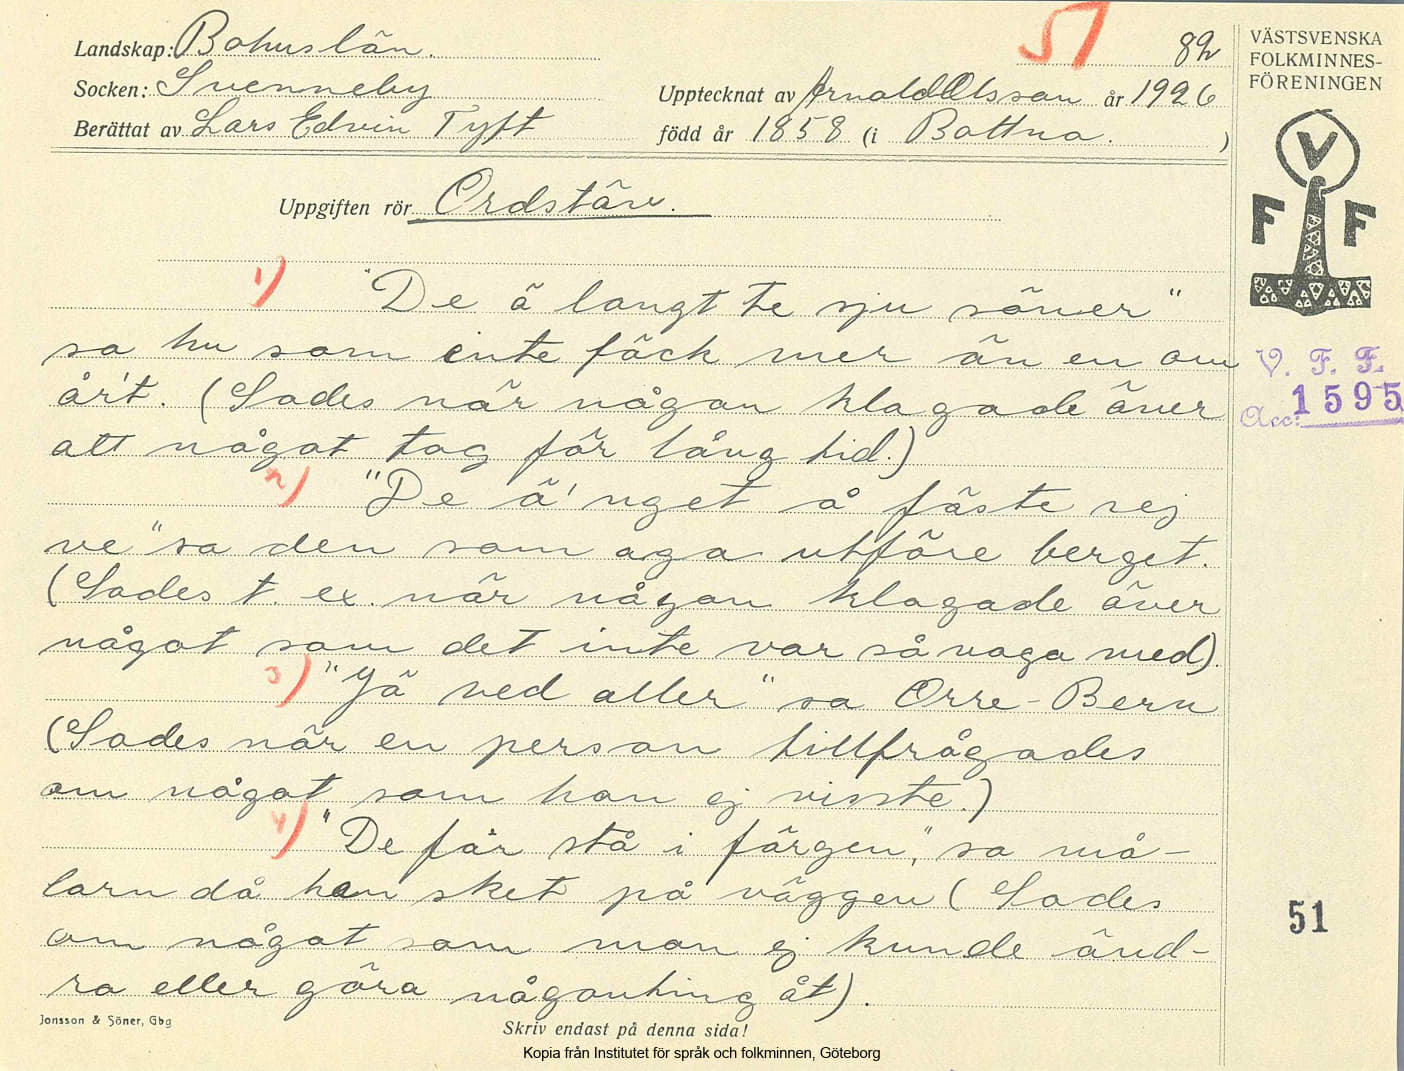 57 82
Landskap: Bohuslän.
Socken: Svenneby
Upptecknat av Arnold Olsson år 1926
Berättat av Lars Edvin Tyft
född år 1858 (i Bottna. )
VÄSTSVENSKA
FOLKMINNES-
FÖRENINGEN
V
F F
Uppgiften rör Ordstäv.
1) "De ä langt te sju söner"
sa hu som inte fäck mer än en om
år't. (Sades när någon klagade över
att något tog för lång tid.)
2) "De ä'nget å fäste sej
ve" sa den som aga utföre berget.
(Sades t. ex. när någon klagade över
något som det inte var så noga med).
3) "Jä ved aller" sa Orre-Bern
(Sades när en person tillfrågades
om något som han ej visste.)
4) "De får stå i färgen," sa må-
larn då han sket på väggen (Sades
om något som man ej kunde änd-
ra eller göra någonting åt).
V. F. F.
Acc: 1595
51
Jonsson & Söner, Gbg
Skriv endast på denna sida!
Kopia från Institutet för språk och folkminnen, Göteborg